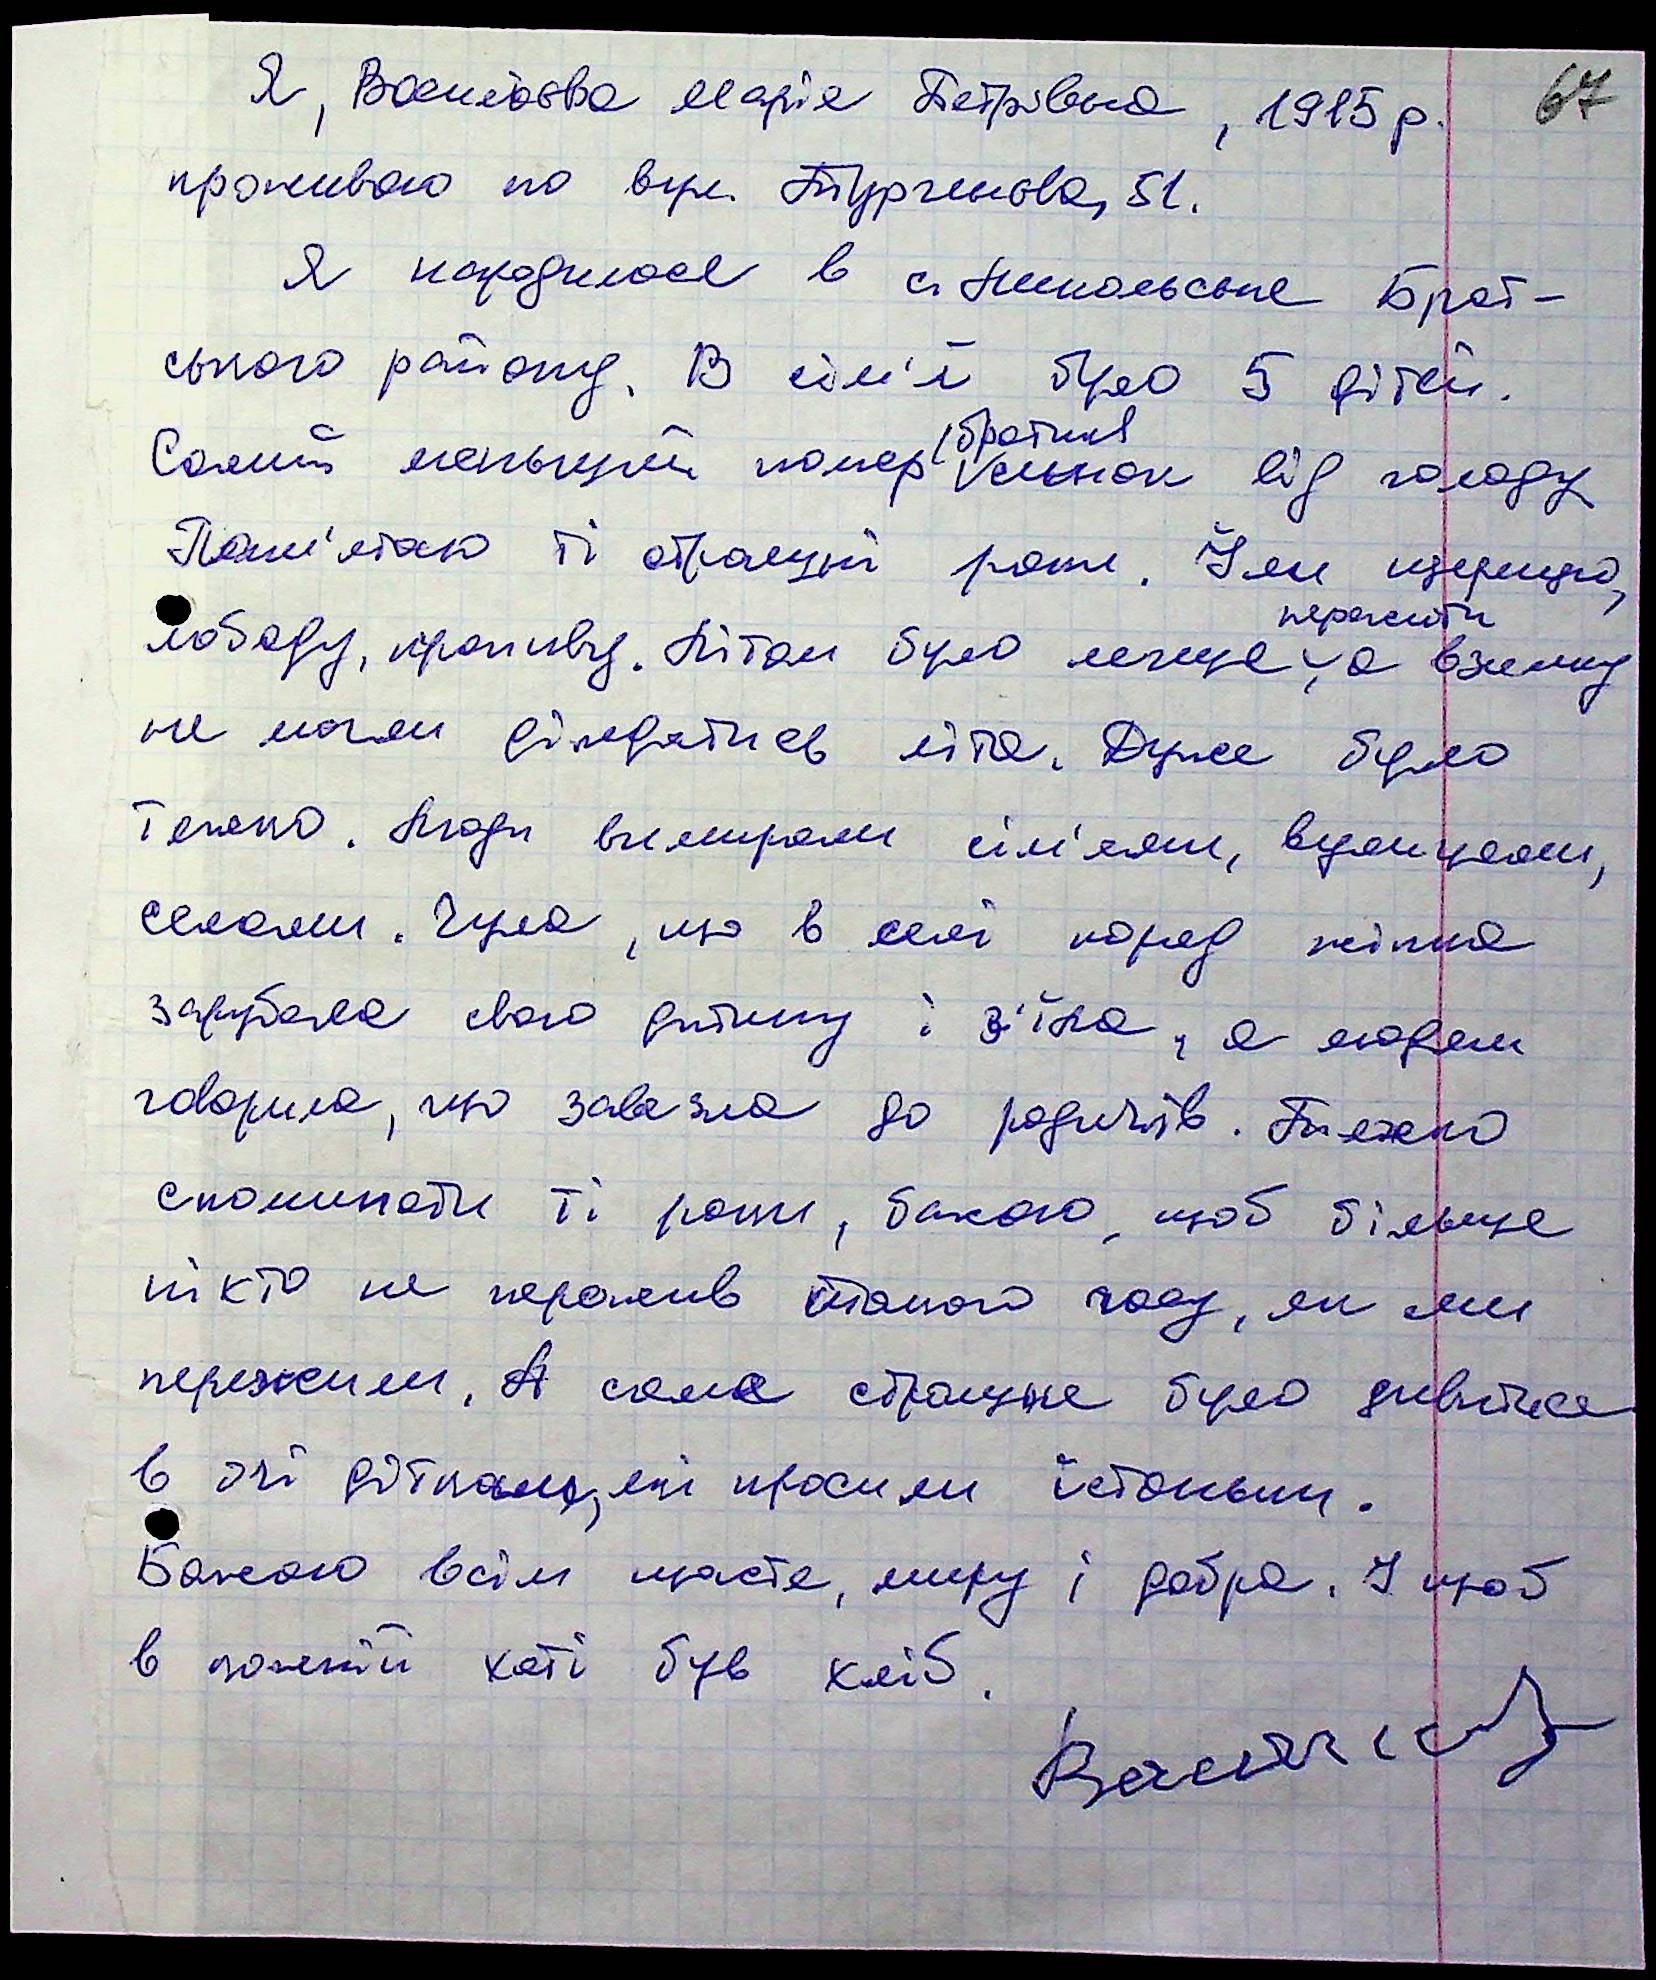 67
Я, Васильєва Марія Петрівна, 1915 р.
проживаю по вул. Тургенєва, 51.
Я народилася в с. Никольське Брат-
ського району. В сім'ї було 5 дітей.
братик
Самий меньший помер синок від голоду
Пам'ятаю ті страшні роки. Їли щирицю,
пережити
лободу, кропиву. Літом було легше, а взимку
не могли діждатись літа. Дуже було
тяжко. Люди вимирали сім'ями, вулицями,
селами. Чула, що в селі поряд жінка
зарубала свою дитину і з'їла, а людям
говорила, що завезла до родичів. Тяжко
споминати ті роки, бажаю, щоб більше
ніхто не пережив такого часу, як ми
пережили. А саме страшне було дивитися
в очі діткам, які просили їстоньки.
Бажаю всім щастя, миру і добра. І щоб
в кожній хаті був хліб.